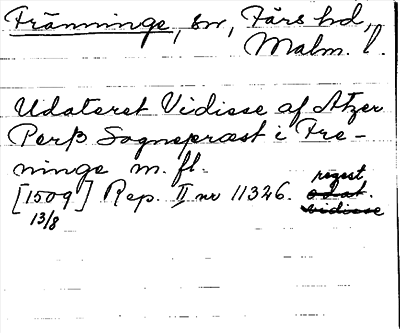 Tränninge, sn, Färs hd,
Malm. l.
Udateret Vidisse af Atzer
Perß Sognepræst i Tre-
ninge m. fl.
[1509] Rep. II nr 11326. regest
13/8 odat.
vidisse